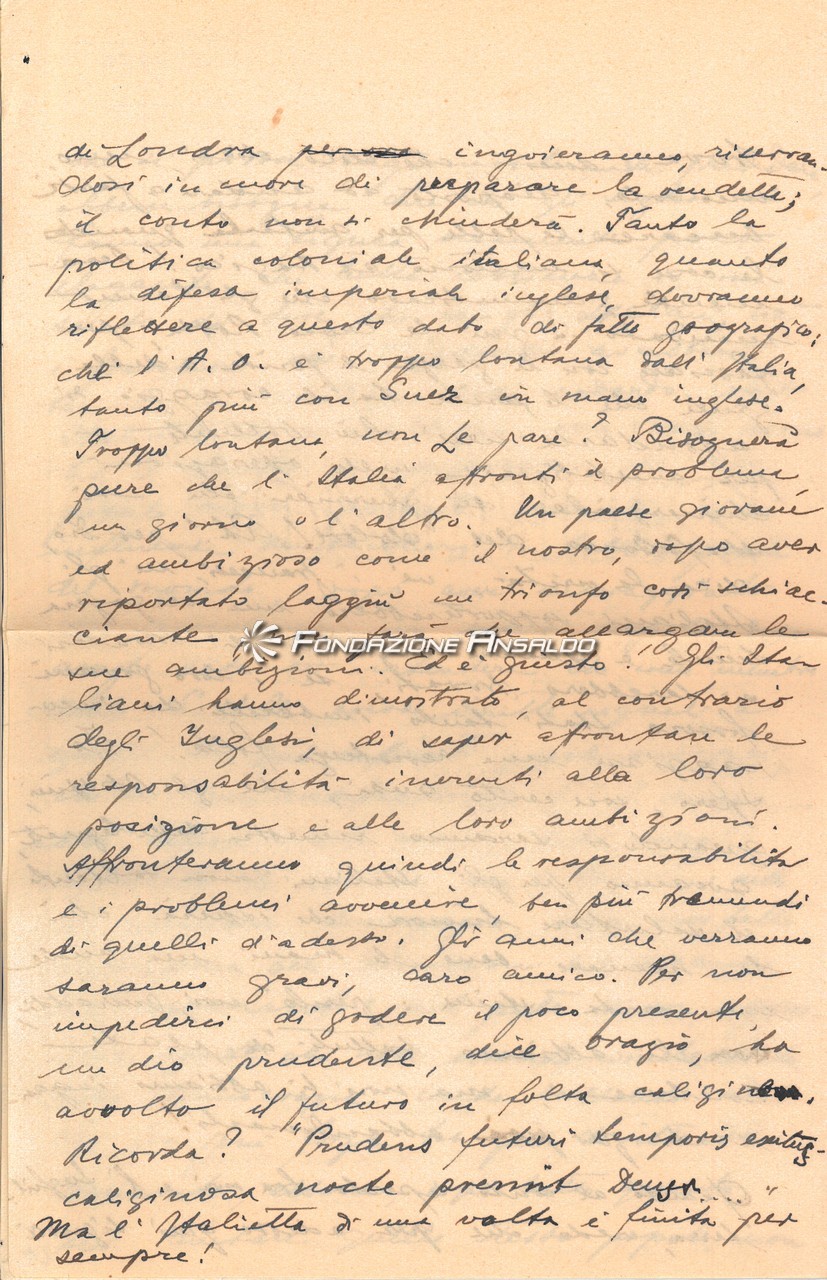 di Londra per ora ingoieranno, riservan-
dosi in cuore di preparare la vendetta;
il conto non si chiuderà. Tanto la
politica coloniale italiana, quanto
la difesa imperiale inglese, dovranno
riflettere a questo dato di fatto geografico:
che l'A. O. è troppo lontana dall'Italia,
tanto più con Suez in mano inglese.
Troppo lontana, non Le pare? Bisognerà
pure che l'Italia affronti il problema,
un giorno o l'altro. Un paese giovane
ed ambizioso come il nostro, dopo aver
riportato laggiù un trionfo così schiac-
ciante, che allargare le
FONDAZIONE ANSALDO
sue ambizioni. Ed è giusto. Gli Ita-
liani hanno dimostrato, al contrario
degli Inglesi, di saper affrontare le
responsabilità inerenti alla loro
posizione e alle loro ambizioni.
Affronteranno quindi le responsabilità
e i problemi avvenire, ben più tremendi
di quelli d'adesso. Gli anni che verranno
saranno gravi, caro amico. Per non
impedirci di godere il poco presente,
un dio prudente, dice Orazio, ha
avvolto il futuro in folta caligine.
Ricorda? "Prudens futuri temporis exitus-
caliginosa nocte premit Deus....."
Ma l'Italietta di una volta è finita per
sempre!